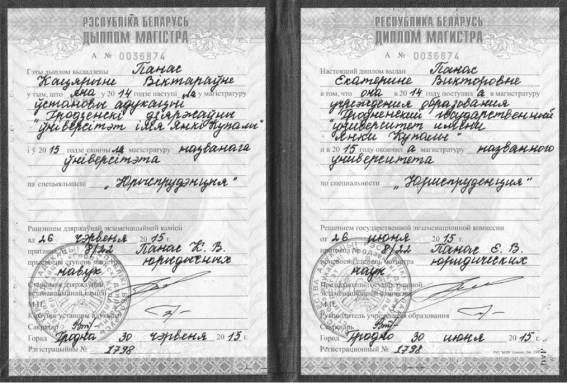 РЭСПУБЛІКА БЕЛАРУСЬ
ДЫПЛОМ МАГІСТРА
А № 0036874
Гэты дыплом выдадзены Панас
Кацярыне Віктараўне
у тым, што яна у 2014 годзе паступіла у магістратуру
ўстановы адукацыі
"Гродзенскі дзяржаўны
ўніверсітэт імя Янкі Купалы"
і у 2015 годзе скончыла магістратуру названага
ўніверсітэта
па спецыяльнасці "Юрыспрудэнцыя"
Рашэннем дзяржаўнай экзаменацыйнай камісіі
ад 26 чэрвеня 2015 г.
пратакол 8/22 Панас К. В.
юрыдычных
навук
М.П.
Сакратар
Горад Гродна 30 чэрвеня 2015 г.
Рэгістрацыйны № 2798
РЕСПУБЛИКА БЕЛАРУСЬ
ДИПЛОМ МАГИСТРА
А № 0036874
Настоящий диплом выдан Панас
Екатерине Викторовне
в том, что она в 2014 году поступила в магистратуру
учреждения образования
"Гродненский государственный
университет имени
Янки Купалы"
и в 2015 году окончила магистратуру названного
университета
по специальности "Юриспруденция"
Решением государственной экзаменационной комиссии
от 26 июня 2015 г.
8/22 Панас Е. В.
степень магистра юридических
наук
М.П.
Руководитель учреждения образования
Секретарь
Город Гродно 30 июня 2015 г.
Регистрационный № 2798